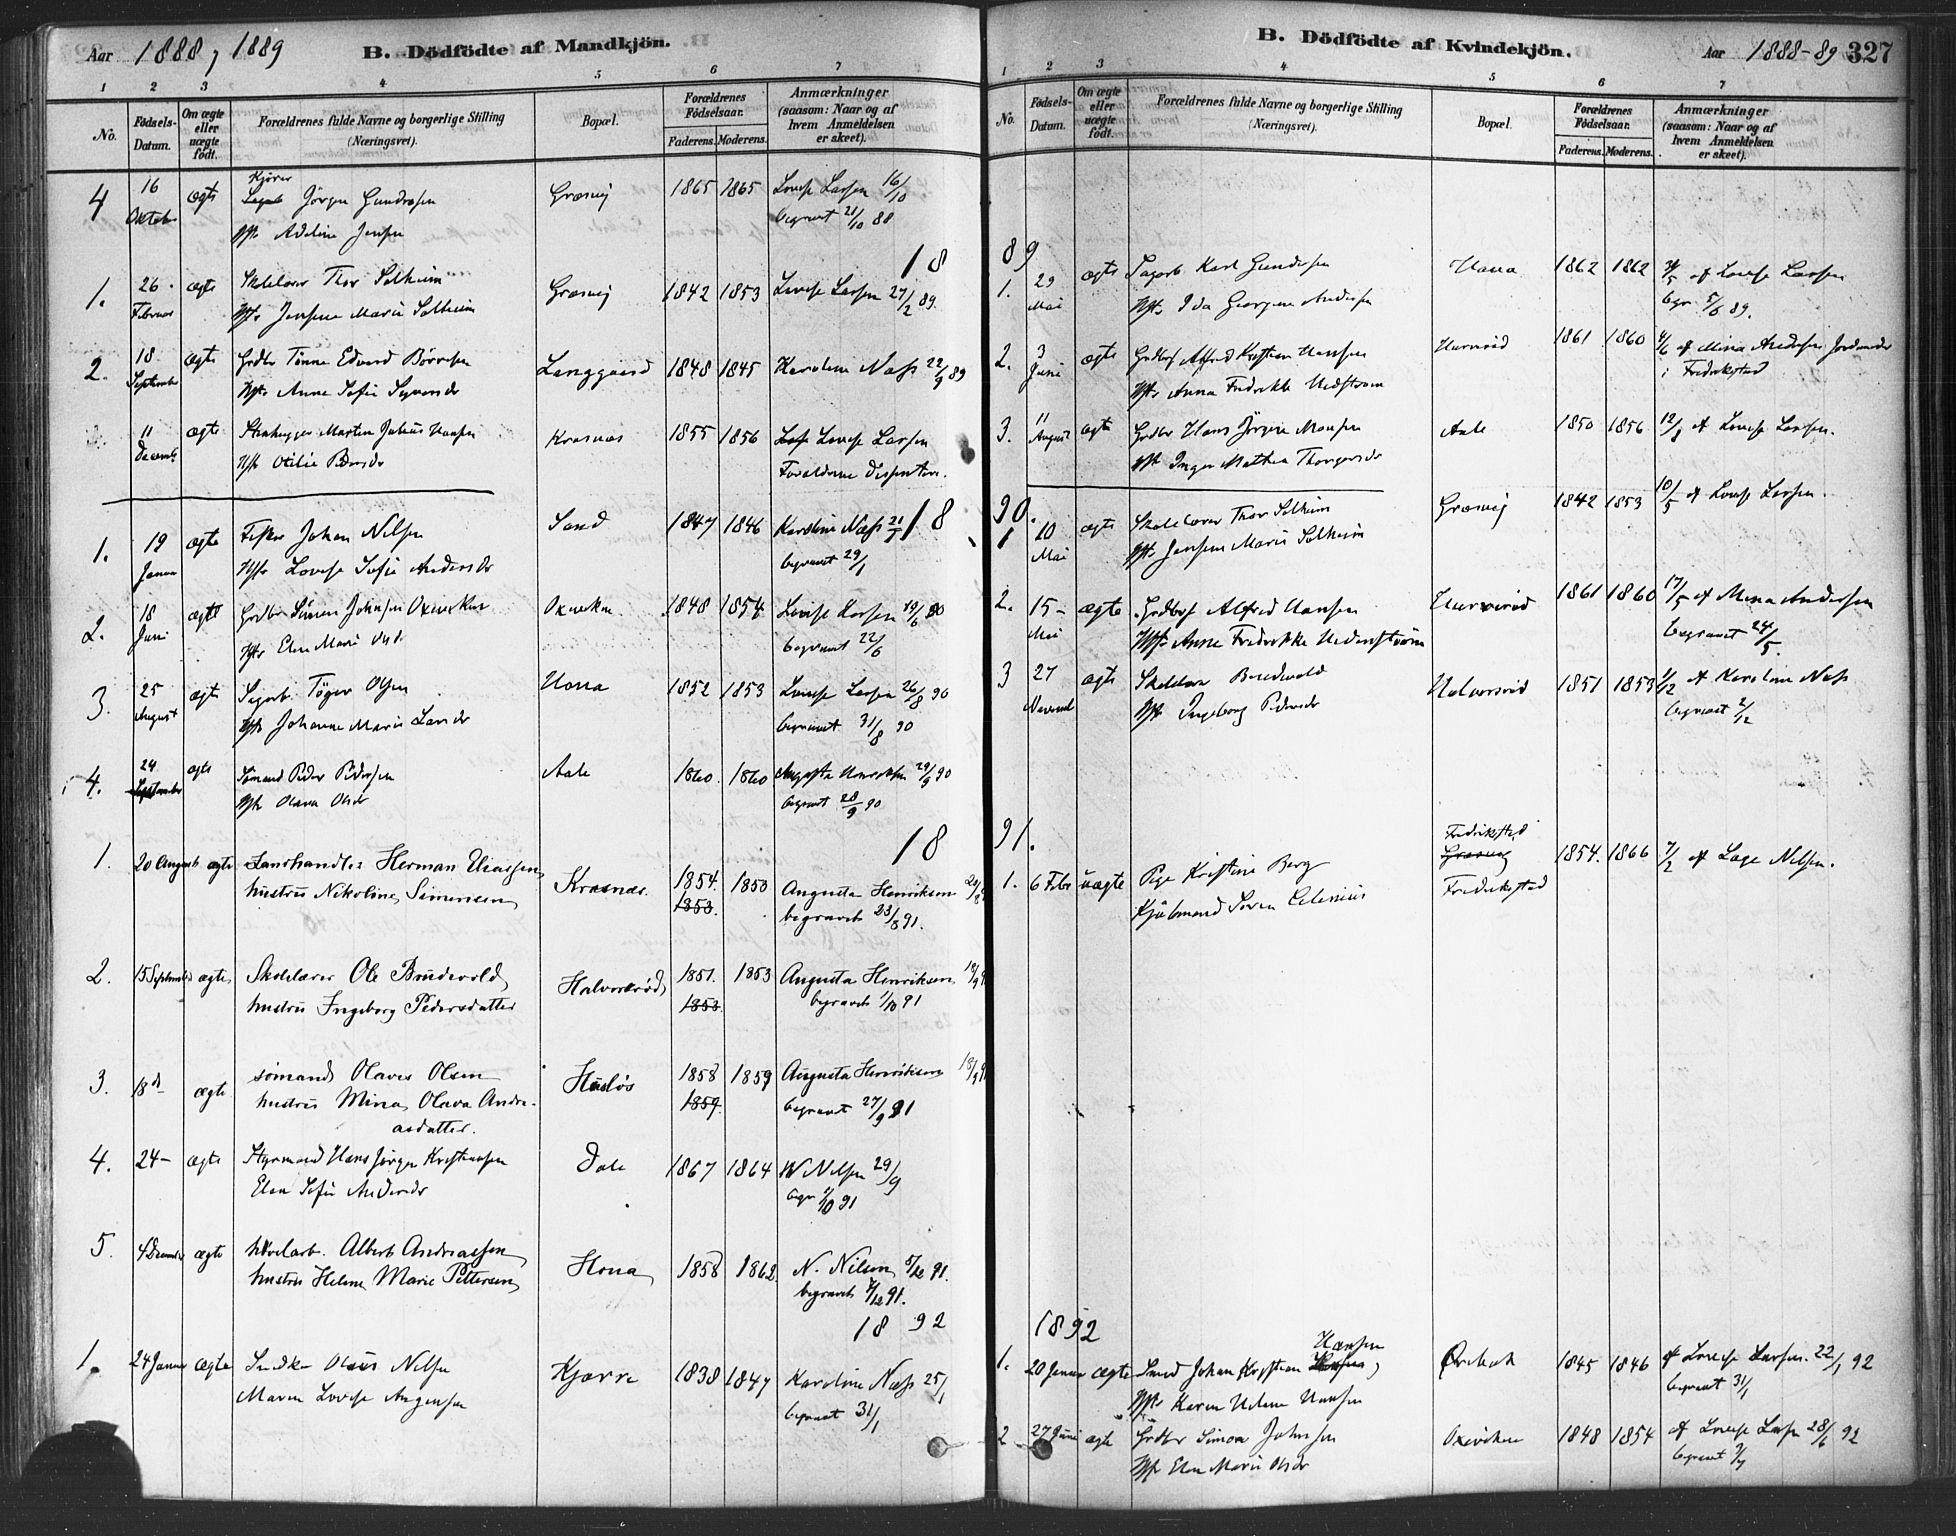 Aar 1888, 1889
B. Dödfödte af Mandkjön.
1 2 3 4 5 6 7
No.
Födsels-Datum.
Om ægte eller uægte födt.
Forældrenes fulde Navne og borgerlige Stilling (Næringsvei).
Bopæl.
Forældrenes Födselsaar.
Faderens. Moderens.
Anmærkninger (saasom: Naar og af hvem Anmeldelsen er skeet).
4 16 Oktober ægte Kjører Jörgen Gundersen Græsvig 1865 1865 Lovise Larsen 16/10
Hst. Adeline Jensen begravet 21/10 88
18 89
1. 26 Februar ægte Skolelærer Thor Solheim Græsvig 1842 1853 Lovise Larsen 27/2 89.
Hst. Jensine Marie Solheim
2. 18 September ægte Grdbr Tönne Edvard Börresen Langgaard 1848 1845 Karoline Næss 22/9 89
Hst. Anne Sofie Syversdr
3. 11 Decemb. ægte Stenhugger Martin Julius Hansen Kraanaas 1855 1856 Lovise Larsen
Hst. Otilie Forældrene Dissentere.
18 90.
1. 19 Januar ægte Fisker Johan Nilsen Sand 1847 1846 Karoline Næss 21/1
Hst. Lovise Sofie Andersdr begravet 29/1
2. 18 Juni ægte Grdbr Simon Johnsen Oxeviken Oxeviken 1848 1854 Lovise Larsen 19/6 90
Hst. Elen Marie Olsdr begravet 22/6
3. 25 August ægte Sagarb. Töger Olsen Hona 1852 1853 Lovise Larsen 26/8 90
Hst. Johanne Marie Larsdr begravet 31/8 90
4. 24 September ægte Sömand Peder Pedersen Aale 1860 1860 Augusta Henriksen 29/9 90
Hst. Olava Olsdr begravet 28/9 90
18 91.
1. 20 August ægte Lanshandler Herman Eliassen, Kraanaas. 1854. 1850 Augusta Henriksen
hustru Nikoline Simensen 1853. begravet 23/8 91.
2. 15 September ægte Skolelærer Ole Brudevold, Halvorsröd, 1851. 1853 Augusta Henriksen 18/9 91
hustru Ingeborg Pedersdatter 1853 begravet 1/10 91
3. 18de ægte sömand Olaves Olsen Huslös 1858 1859 Augusta Henriksen 18/9 91
hustru Mina Olava Andre- 1859. begravet 27/9 91
asdatter.
4. 24 – ægte Styrmand Hans Jörgen Kristiansen Dale 1867 1864 N Nilsen 29/9
Elen Sofie Andersdr begr 1/10 91
5. 4 December ægte hövelarb. Albert Andreassen, Hona, 1858 1862. N. Nilsen 5/12 91.
hustru Helene Marie Pettersen, begravet 7/12 91.
18 92
1. 24 Januar ægte Snedker Olaus Nilsen Kjærre 1838 1847 Karoline Næss 25/1
Maren Lovise Augensen begravet 31/1
B. Dödfödte af Kvindekjön.
Aar 1888-89 327
1 2 3 4 5 6 7
No.
Födsels-Datum.
Om ægte eller uægte födt.
Forældrenes fulde Navne og borgerlige Stilling (Næringsvei).
Bopæl.
Forældrenes Födselsaar.
Faderens. Moderens.
Anmærkninger (saasom: Naar og af hvem Anmeldelsen er skeet).
1. 29 Mai ægte Sagarb Karl Gundersen Hana 1862 1862 af Lovise Larsen
Hst. Ida Georgine Andersen begr. 5/6 89.
2. 3 Juni ægte Grdbrs Alfred Kristian Hansen Hurvröd 1861 1860 4/6 af Mina Andersen Jordmoder
Hst. Anna Fredrikke Hedström i Fredrikstad
3. 11 August ægte Grdbr Hans Jörgen Monsen Aale 1850 1856 12/8 af Lovise Larsen.
Hst. Inger Mathea Thorgersdr
1 10 Mai ægte Skolelærer Thor Solheim Græsvig 1842 1853 10/5 af Lovise Larsen.
Hst. Jensine Marie Solheim
2. 15 – Mai ægte Grdbrs Alfred Hansen Hurvröd 1861 1860 17/5 af Mina Andersen
Hst. Anna Fredrikke Hedenström begravet 24/5.
3 27 Novemb ægte Skolelærer Brudevold Halvorsröd 1851 1853 1/12 af Karoline Næss
Hst. Ingeborg Pedersdr begravet 2/12
Fredrikstad
Græsvig
1. 6 Febr uægte Pige Kristine Berg Fredrikstad 1854. 1866 7/2 af Lage Nilsen.
Kjöbmand Sören Celenius
1892
1. 20 Januar ægte Smed Johan Kristian Hansen, Örebæk 1845 1846 af Lovise Larsen. 22/1 92
Hst. Karen Helene Hansen begravet 31/1
2 27 Juni ægte Grdbr Simon Johnsen Oxeviken 1848 1854 af Lovise Larsen 28/6 92
Hst. Elen Marie Olsdr begravet 3/7